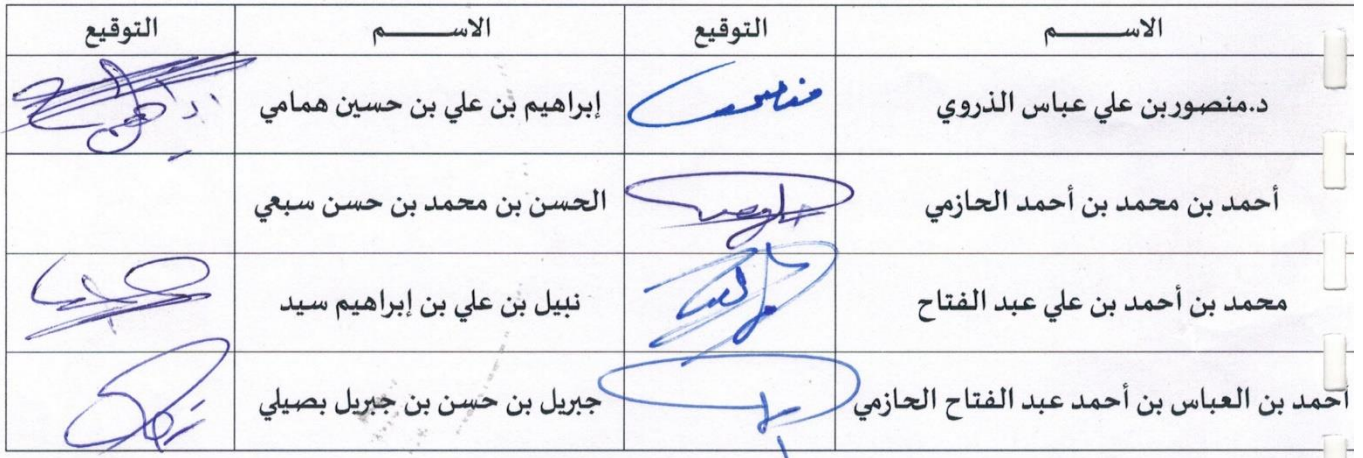 الاســـــــم التوقيع الاســـــــم التوقيع
د.منصوربن علي عباس الذروي إبراهيم بن علي بن حسين همامي
أحمد بن محمد بن أحمد الحازمي الحسن بن محمد بن حسن سبعي
محمد بن أحمد بن علي عبد الفتاح نبيل بن علي بن إبراهيم سيد
أحمد بن العباس بن أحمد عبد الفتاح الحازمي جبريل بن حسن بن جبريل بصيلي